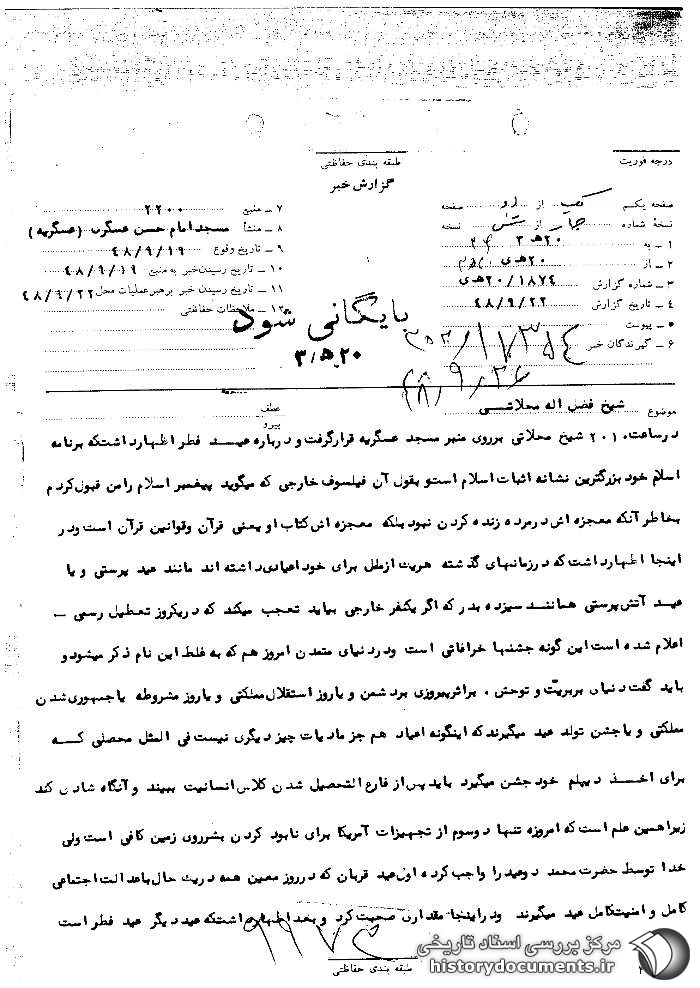 درجه فوریت
طبقه بندی حفاظتی
گزارش خبر
صفحه یکم از دو صفحه
نسخهٔ شماره چهار از شش نسخه
۱ ـ به ۲۰ هـ ۳
۲ ـ از ۲۰ هـ ی
۳ ـ شماره گزارش ۲۰/۱۸۷۴ هـ ی
۴ ـ تاریخ گزارش ۴۸/۹/۲۲
۵ ـ پیوست
۶ ـ گیرندگان خبر
۷ ـ منبع ۲۲۰۰
۸ ـ منشأ مسجد امام حسن عسگری (عسگریه)
۹ ـ تاریخ وقوع ۴۸/۹/۱۹
۱۰ ـ تاریخ رسیدن خبر به منبع ۴۸/۹/۱۹
۱۱ ـ تاریخ رسیدن خبر برهبر عملیات محل ۴۸/۹/۲۲
۱۲ ـ ملاحظات حفاظتی
بایگانی شود
موضوع شیخ فضل اله محلاتی
عطف
پیرو
در ساعت ۲۰۱ شیخ محلاتی برروی منبر مسجد عسگریه قرار گرفت و درباره عید فطر اظهار داشت که برنامه
اسلام خود بزرگترین نشانه اثبات اسلام است و بقول آن فیلسوف خارجی که میگوید پیغمبر اسلام را من قبول کردم
بخاطر آنکه معجزه اش در مرده زنده کردن نبود بلکه معجزه اش کتاب او یعنی قرآن و قوانین قرآن است و در
اینجا اظهار داشت که در زمانهای گذشته هریک از ملل برای خود اعیادی داشته اند مانند عید پرستی و یا
عید آتش پرستی همانند سیزده بدر که اگر یکنفر خارجی بیاید تعجب میکند که در یکروز تعطیل رسمی ـ
اعلام شده است این گونه جشنها خرافاتی است و در دنیای متمدن امروز هم که به غلط این نام ذکر میشود و
باید گفت دنیای بربریت و توحش . براثر پیروزی بر دشمن و یا روز استقلال مملکتی و یا روز مشروطه یا جمهوری شدن
مملکتی و یا جشن تولد عید میگیرند که اینگونه اعیاد هم جز مادیات چیز دیگری نیست فی المثل محصلی کــه
برای اخــذ دیپلم خود جشن میگیرد باید پس از فارغ التحصیل شدن کلاس انسانیت ببیند و آنگاه شادی کند
زیرا همین علم است که امروزه تنها دو سوم از تجهیزات آمریکا برای نابود کردن بشر روی زمین کافی است ولی
خدا توسط حضرت محمد دو عید را واجب کرده اول عید قربان که در روز معین همه در یک حال با عدالت اجتماعی
کامل و امنیت کامل عید میگیرند و در اینجا مقداری صحبت کرد و بعد اظهار داشت که عید دیگر عید فطر است
طبقه بندی حفاظتی
مرکز بررسی اسناد تاریخی
historydocuments.ir